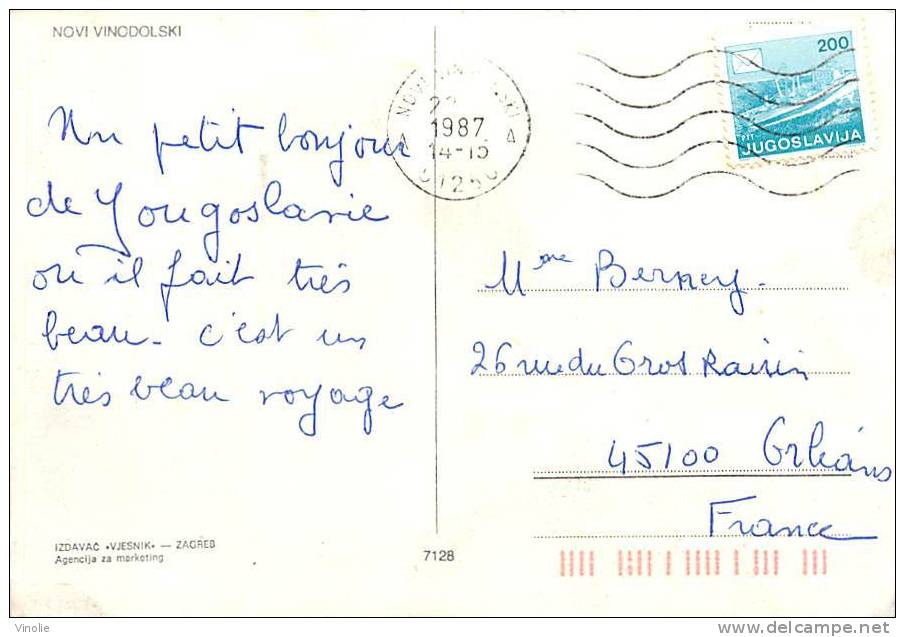 NOVI VINODOLSKI
Un petit bonjour
de Yougoslavie
ou il fait très
beau. c'est un
très beau voyage
IZDAVAČ •VJESNIK• — ZAGREB
Agencija za marketing
7128
1987
14-15
200
PTT
JUGOSLAVIJA
Mme Berney.
26 rue du Gros Raisin
45100 Orléans
France
Vinolie
delcampe.net